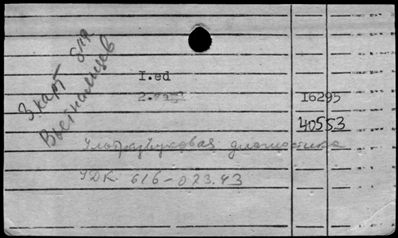 3 карт для
Вьетнамцев
I.ed
2.
I6295
40553
Ультразвуковая диагностика
УДК 616-073.43